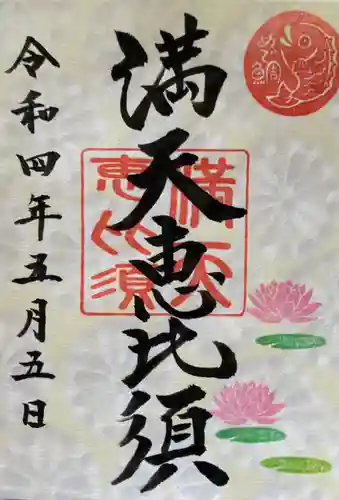 満天恵比須
満天
恵比須
令和四年五月五日